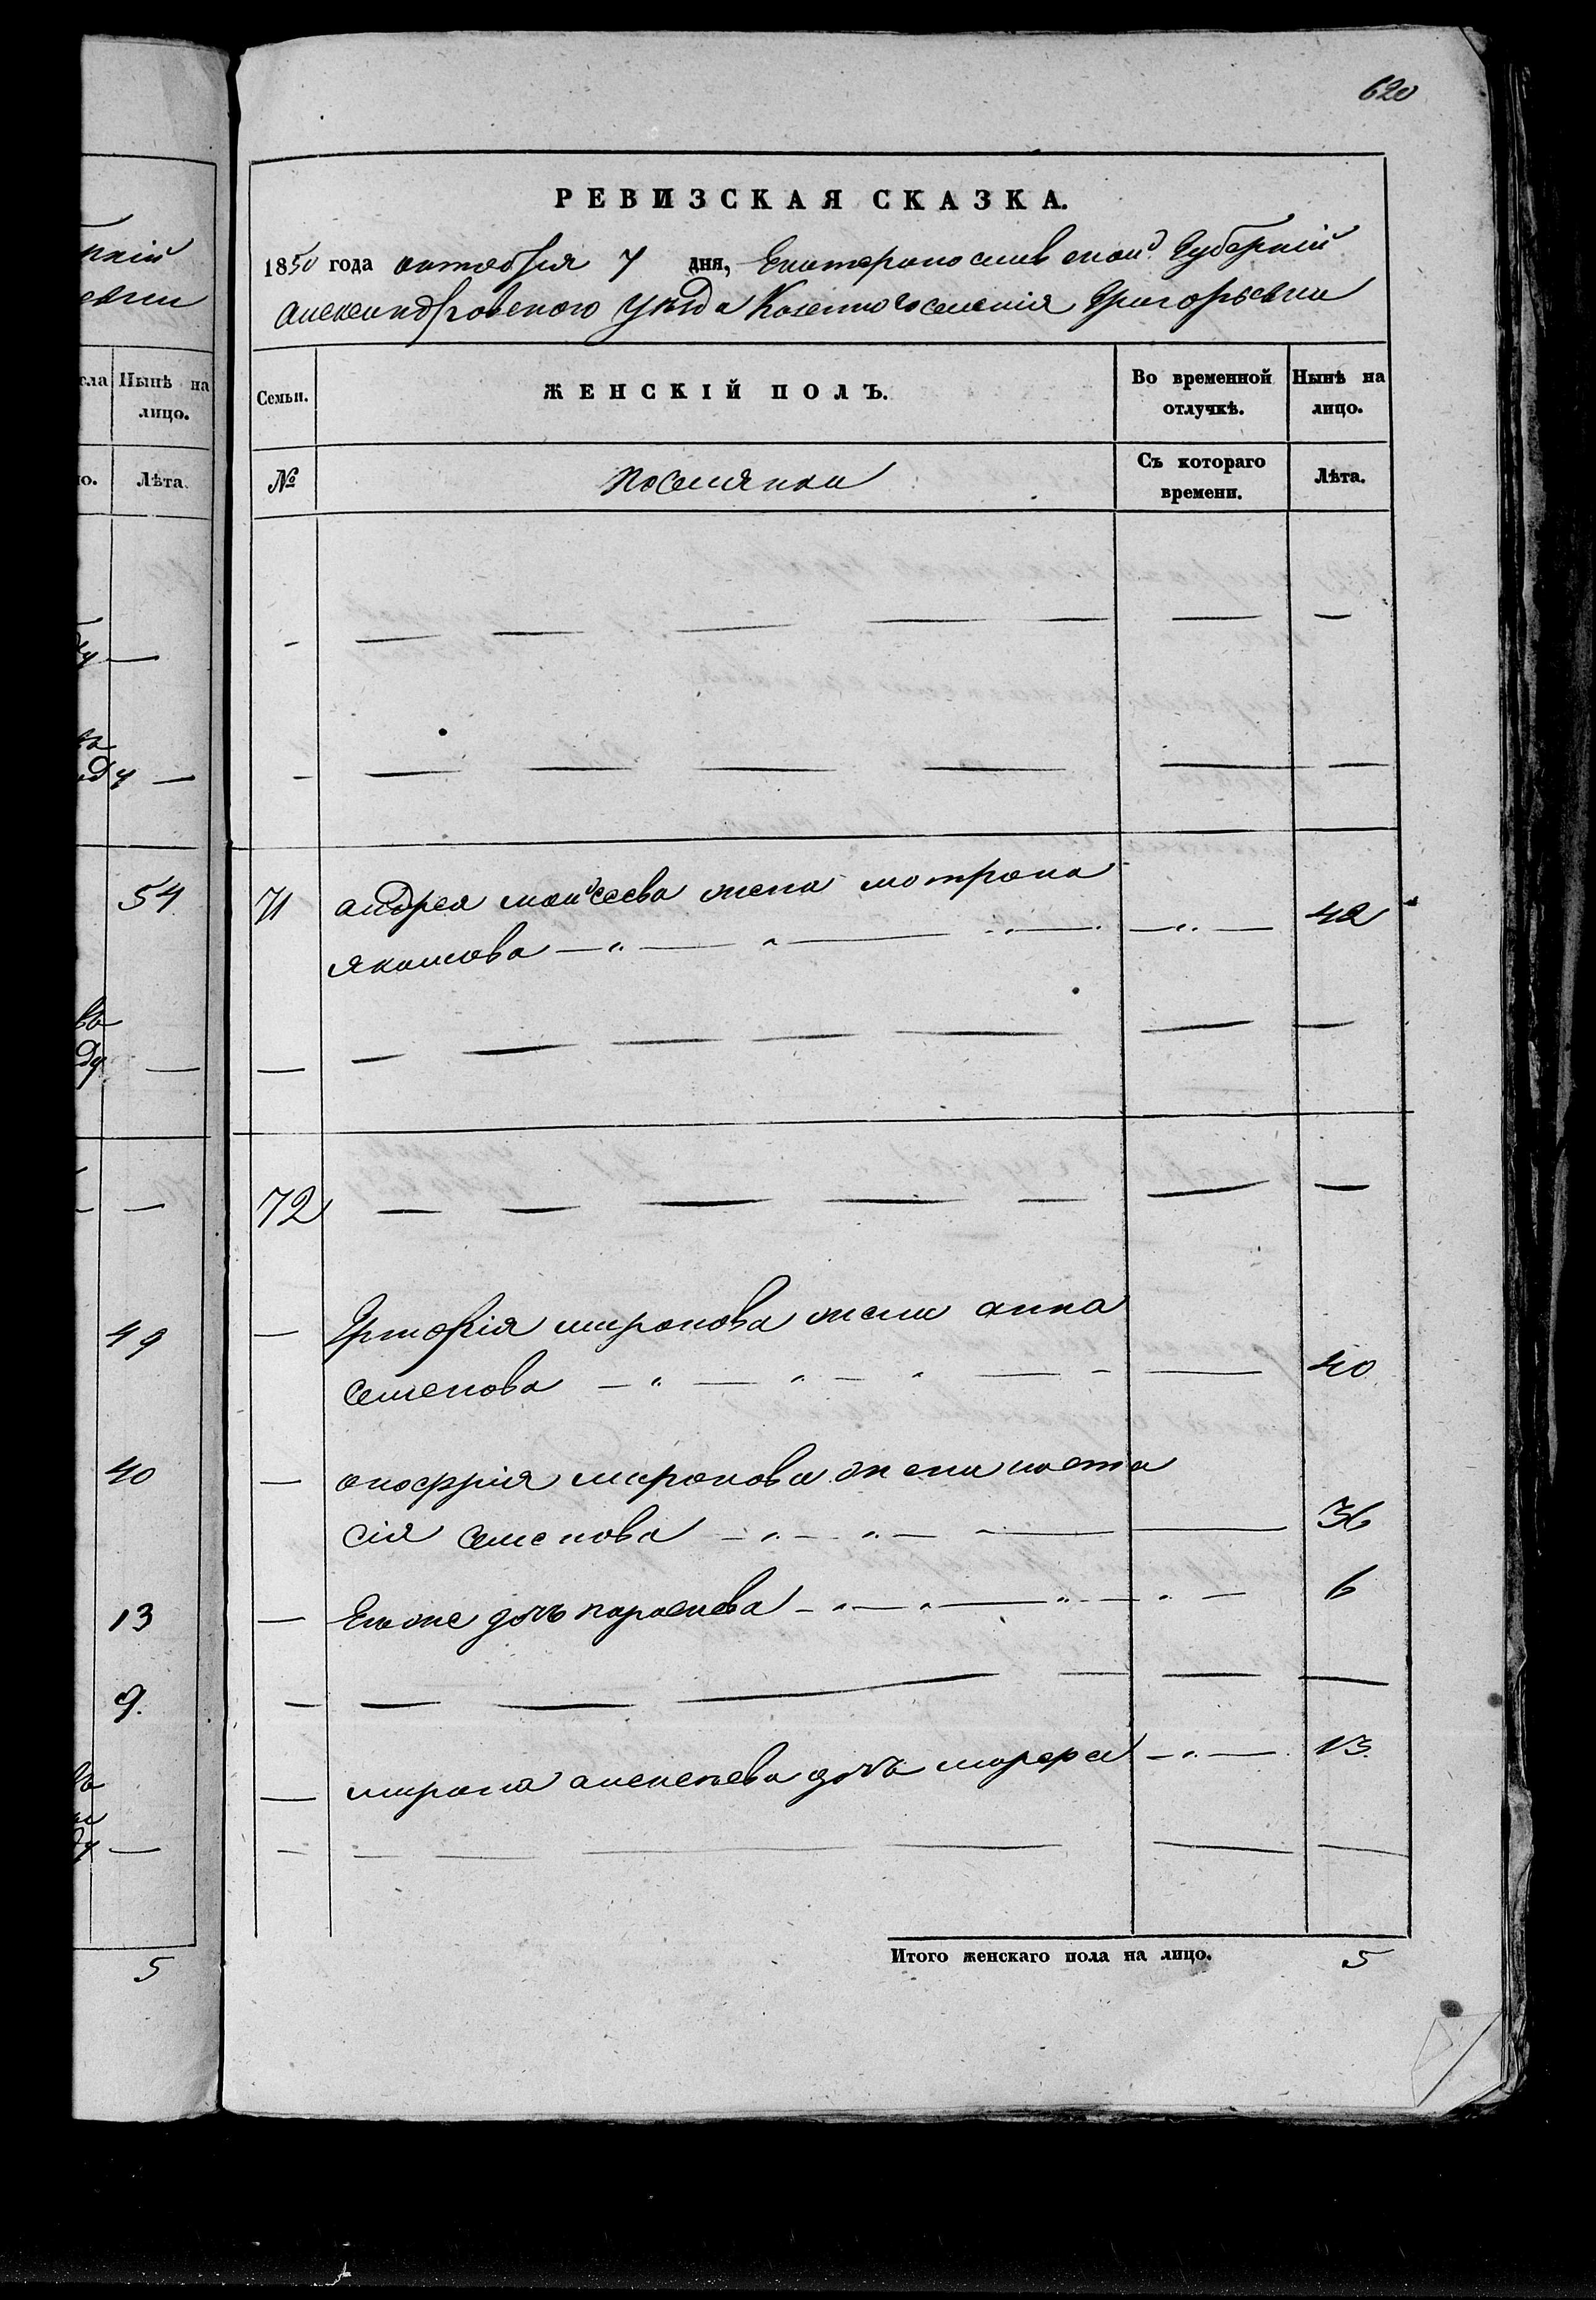 620
РЕВИЗСКАЯ СКАЗКА.
1850 года октября 7 дня, Екатеринославской Губерніи
Александровского уѣзда Казенного селенія Григорьевки
Семьи. ЖЕНСКІЙ ПОЛЪ. Во временной отлучкѣ. Нынѣ на лицо.
№ Поселянки Съ котораго времени. Лѣта.
71 андрея моисеева жена мотрона
якимова 42
72
Григорія миронова жена анна
семенова 40
онофрія миронова жена наста
сія семенова 36
Его же дочь 6
мирона дочь 13
Итого женскаго пола на лицо. 5
Нынѣ на
лицо.
Лѣта.
54
49
40
13
9.
5